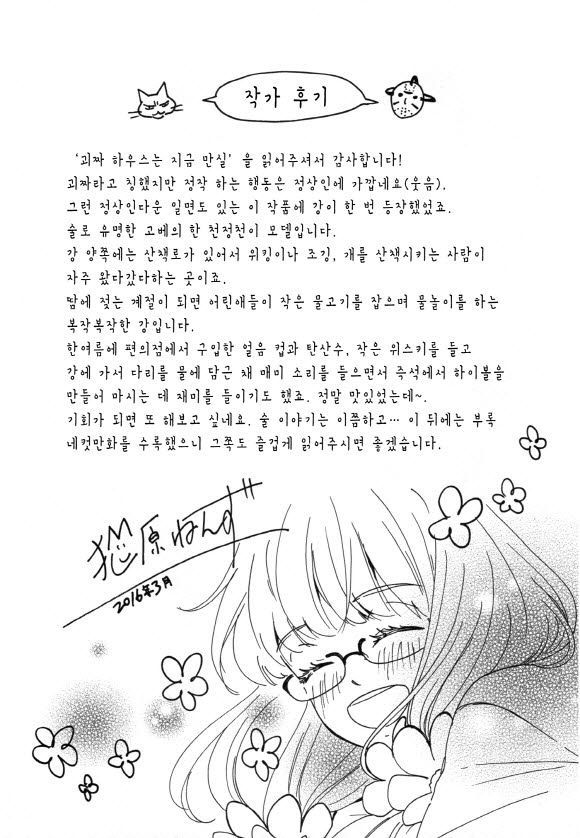 작가 후기
'괴짜 하우스는 지금 만실' 을 읽어주셔서 감사합니다!
괴짜라고 칭했지만 정작 하는 행동은 정상인에 가깝네요(웃음).
그런 정상인다운 일면도 있는 이 작품에 강이 한 번 등장했었죠.
술로 유명한 고베의 한 천정천이 모델입니다.
강 양쪽에는 산책로가 있어서 워킹이나 조깅, 개를 산책시키는 사람이
자주 왔다갔다하는 곳이죠.
땀에 젖는 계절이 되면 어린애들이 작은 물고기를 잡으며 물놀이를 하는
복작복작한 강입니다.
한여름에 편의점에서 구입한 얼음 컵과 탄산수, 작은 위스키를 들고
강에 가서 다리를 물에 담근 채 매미 소리를 들으면서 즉석에서 하이볼을
만들어 마시는 데 재미를 들이기도 했죠. 정말 맛있었는데~.
기회가 되면 또 해보고 싶네요. 술 이야기는 이쯤하고… 이 뒤에는 부록
네컷만화를 수록했으니 그쪽도 즐겁게 읽어주시면 좋겠습니다.
原ねんず
2016年3月